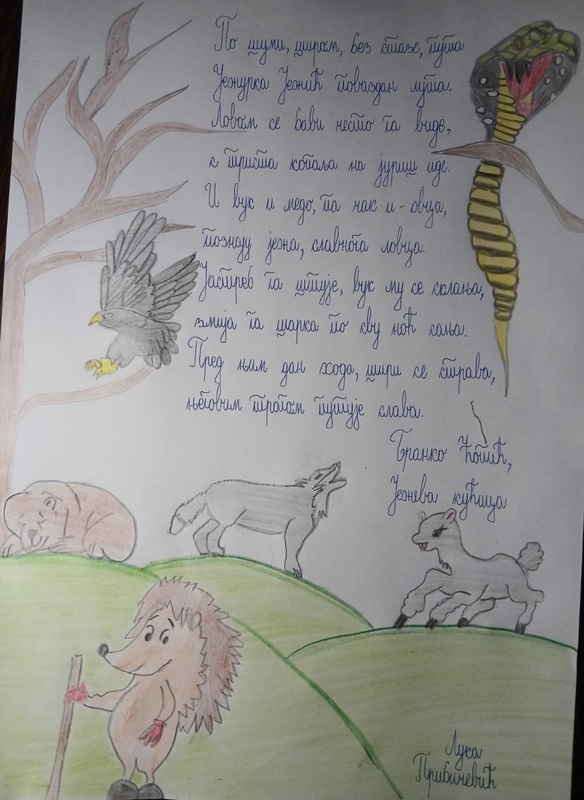 По шуми, широм, без стазе, пута
Јежурка Јежић поваздан лута.
Ловом се бави често га виде,
с триста копаља на јуриш иде.
И вук и медо, па чак и - овца,
познају јежа, славнога ловца.
Јастреб га штује, вук му се склања,
змија га шарка по сву ноћ сања.
Пред њим дан хода, шири се страва,
његовим трагом путује слава.
Бранко Ћопић,
Јежева кућица
Лука
Прибичевић